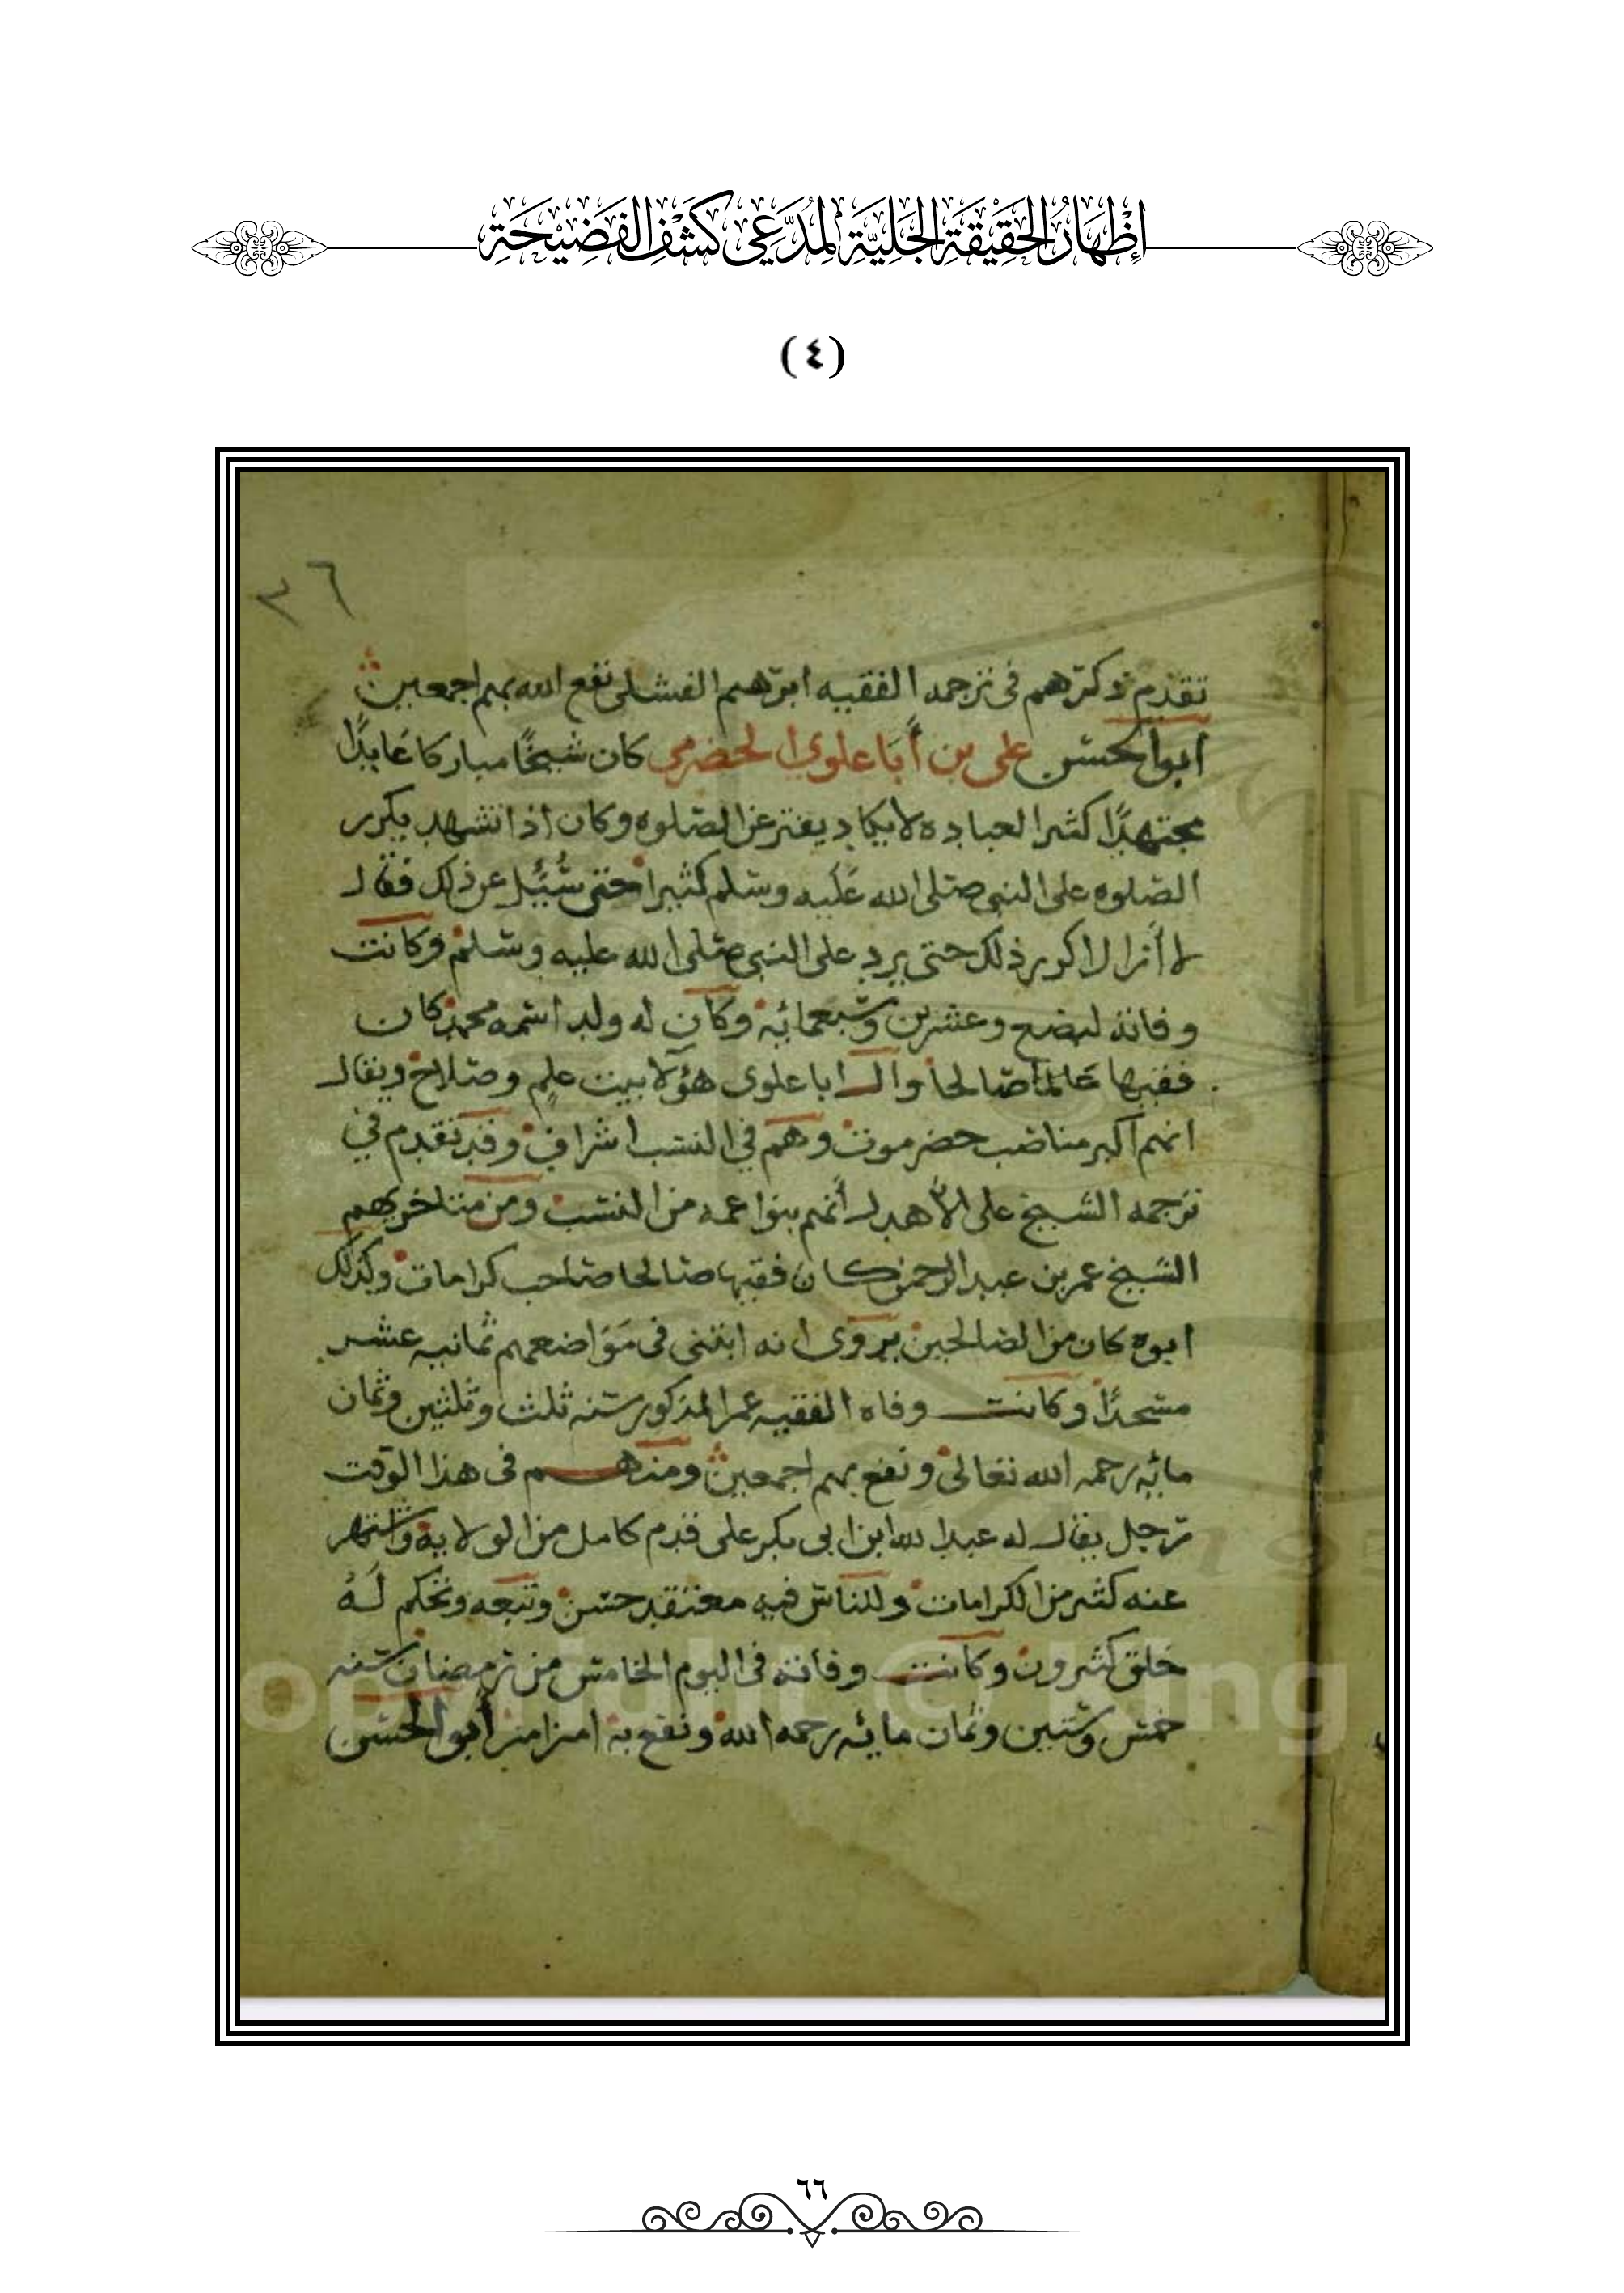 إِظْهَارُ الحَقِيْقَةِ الجَلِيَّةِ لِمُدَّعِي كَشْفِ الفَضِيْحَةِ
(٤)
٣٦
تقدم ذكرهم في ترجمه الفقيه ابرهيم الفشلي نفع الله بهم اجمعين
ابوالحسن علي بن أبا علوي الحضرمي كان شيخًا مباركا عَابدًا
مجتهدًا كثير العباده لا يكاد يفتر عن الصلوه وكان اذا تشهد يكرر
الصلوه على النبي صلى الله عَليه وسلم كثيرا حتى سُئِل عن ذلك فقال
لا أزال اكرر ذلك حتى يرد على النبي صلى الله عليه وسلم وكانت
وفاته لبضع وعشرين وسبعمائه وكان له ولد اسمه محمد كان
فقيها عَالما صالحا وال ابا علوي هؤلا بيت علم وصلاح ويقال
انهم اكبر مناصب حضرموت وهم في النسب اشراف وقد تقدم في
ترجمه الشيخ على الأهدل أنهم بنوا عمه من النسب ومن متاخريهم
الشيخ عمر بن عبد الرحمن كان فقيها صالحا صاحب كرامات وكذلك
ابوه كان من الصالحين يروى انه ابتنى في مَوَاضعهم ثمانيه عشر
مسجدًا وكانت وفاه الفقيه عمر المذكور سنه ثلث وثلثين وثمان
مائه رحمه الله تعالى ونفع بهم اجمعين ومنهم في هذا الوقت
رجل يقال له عبد الله ابن ابي بكر على قدم كامل من الولاية واشتهر
عنه كثير من الكرامات وللناس فيه معتقد حسن وتبعه وتحكم لَهُ
خلق كثيرون وكانت وفاته في اليوم الخامس من رمضان سنه
خمس وستين وثمان مائه رحمه الله ونفع به امين امين أبو الحسن
opyright © King
٦٦